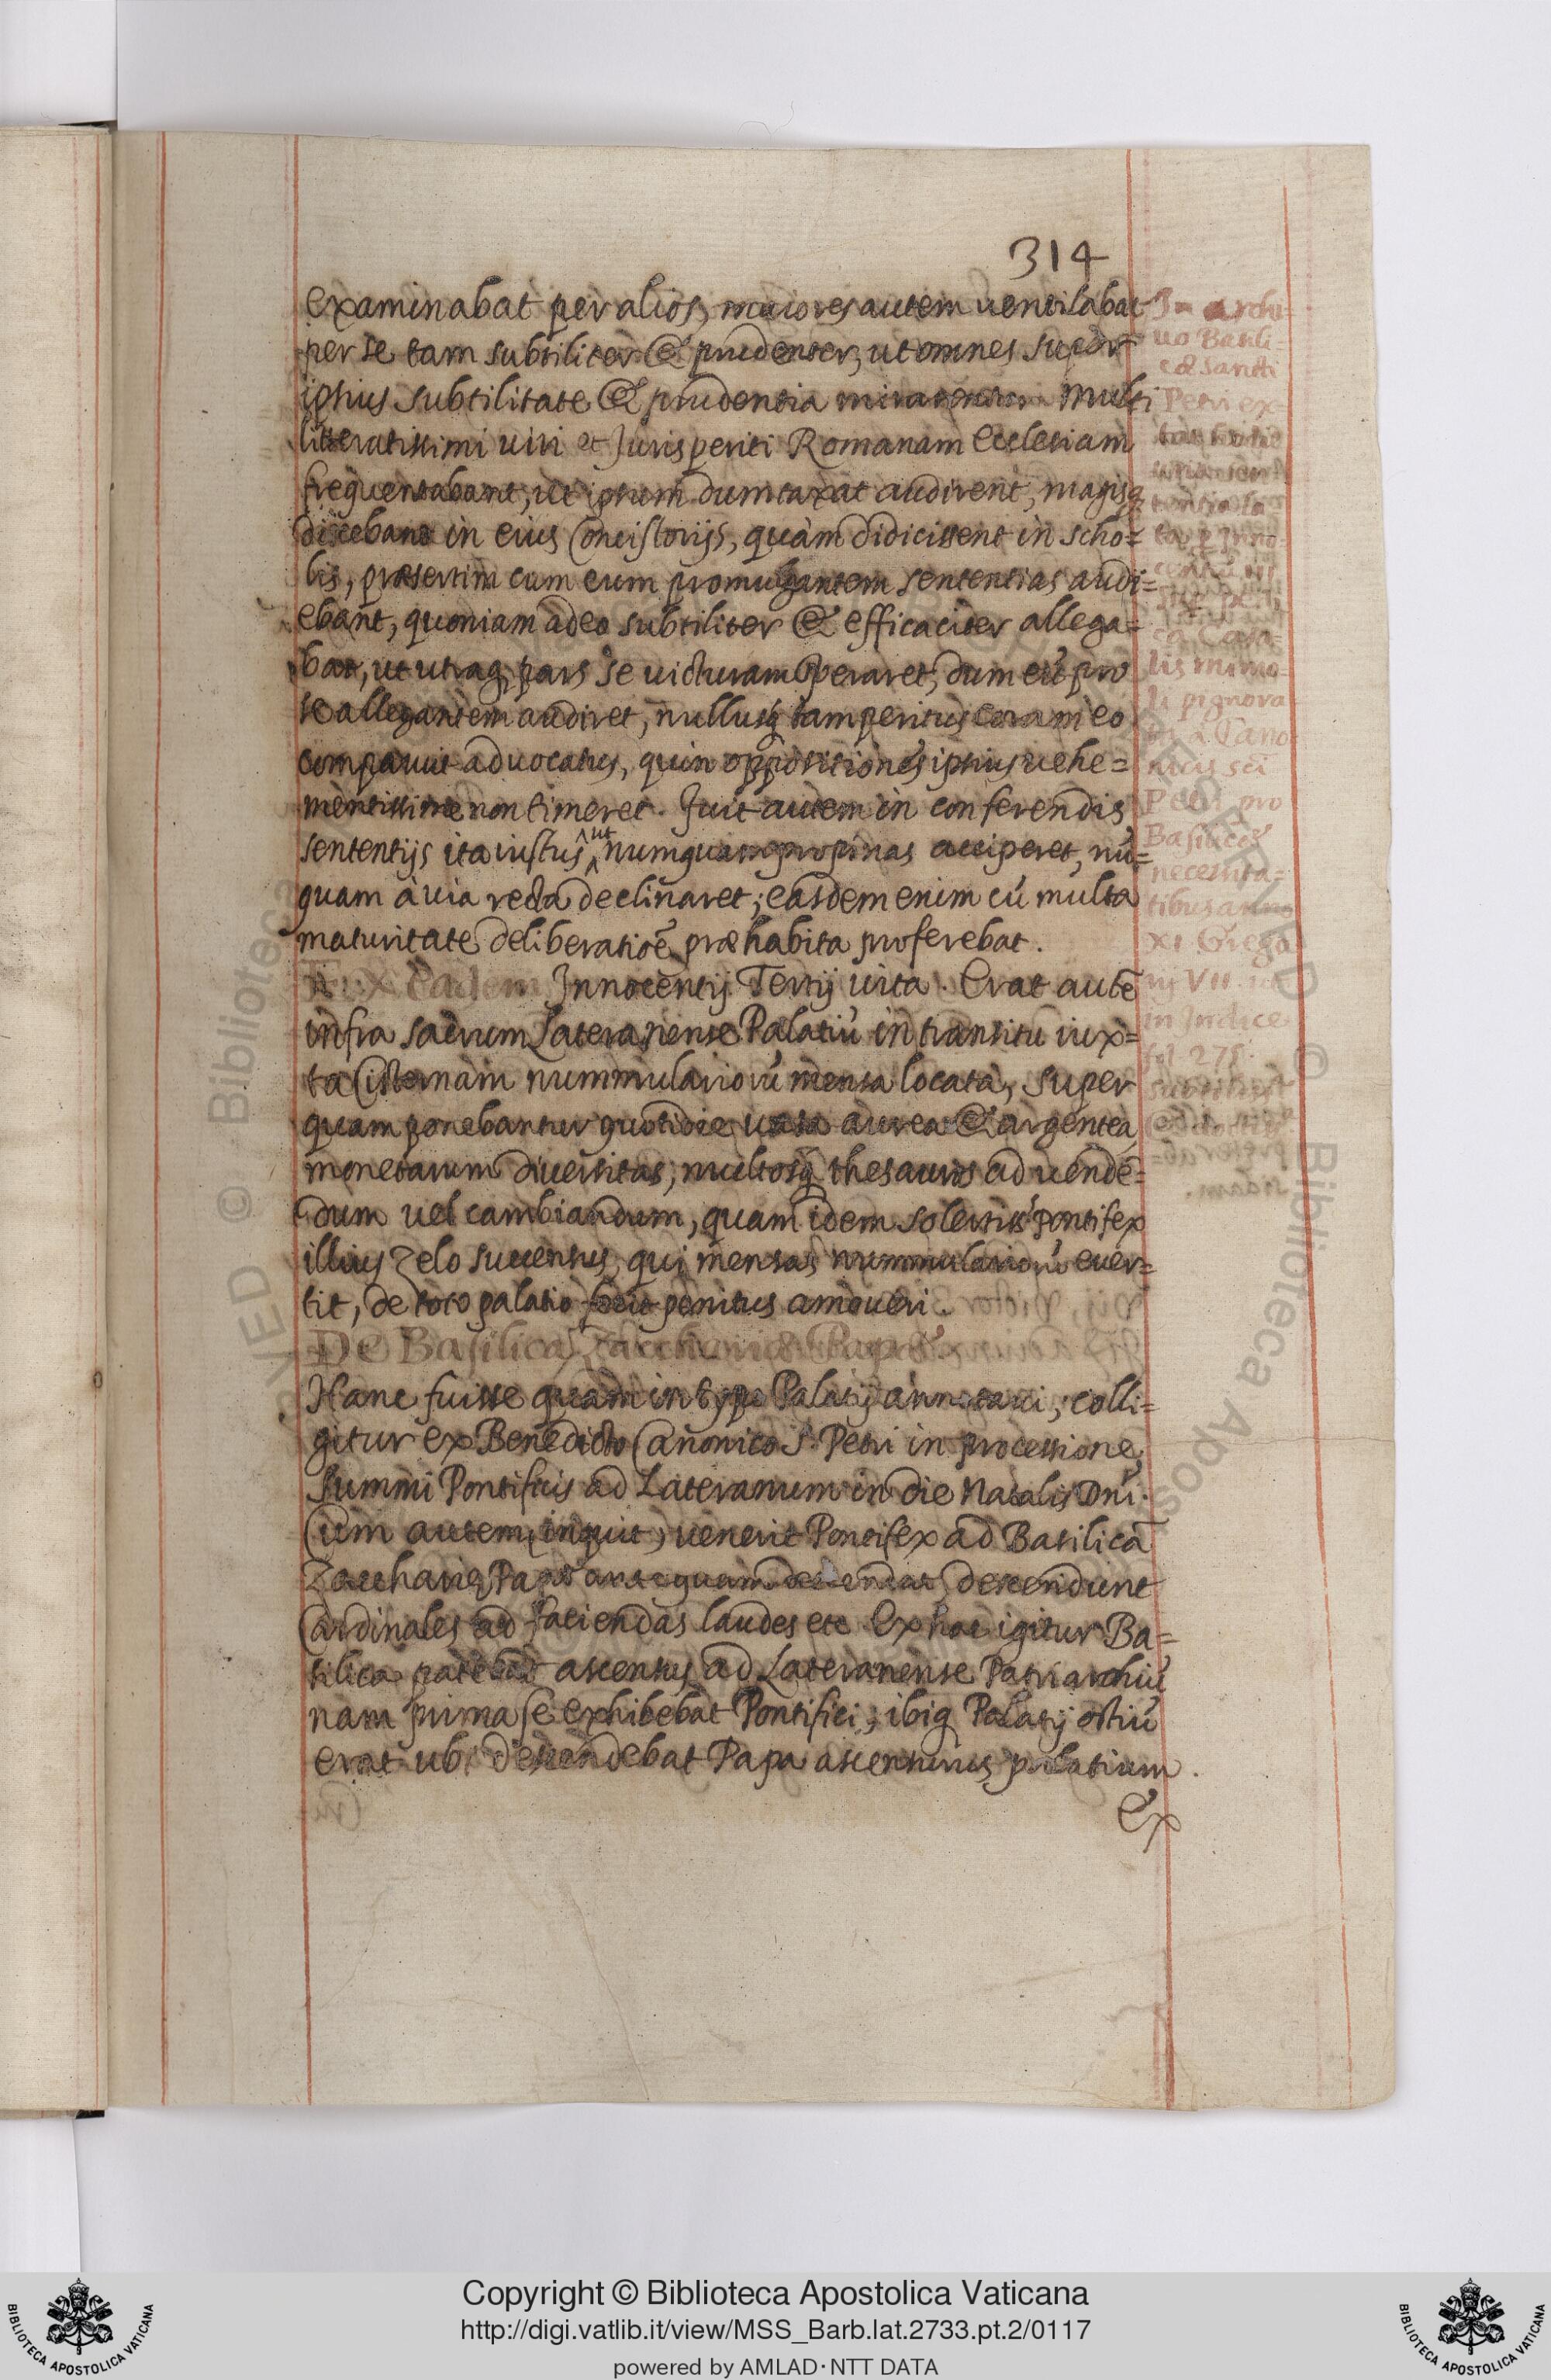 314
examinabat per alios, maiores autem uentilabat
per se tam subtiliter & prudenter, ut omnes super
ipsius subtilitate & prudentia mirarentur. Multi
litteratissimi uiri et Jurisperiti Romanam Ecclesiam
frequentabant, ut ipsum dumtaxat audirent, magisq
discebant in eius Consistorijs, quàm didicissent in scho=
lis, præsertim cum eum promulgantem sententias audi=
ebant, quoniam adeo subtiliter & efficaciter allega=
bat, ut utraq, pars se uicturam speraret, dum eū pro
se allegantem audiret, nullusq tam peritus coram eo
comparuit aduocatus, quin oppositiones ipsius uehe=
mentissime non timeret. Fuit autem in conferendis
sententijs ita iustus ut numquam propinas acciperet, nū=
quam à uia recta declinaret; easdem enim cū multa
maturitate deliberatioē præhabita proferebat.
Ex eadem Innocentij Tertij uita. Erat autē
infra sacrum Lateranense Palatiū in transitu iux=
ta Cisternam nummulariorū mensa locata, super
quam ponebantur quotidie uasa aurea & argentea
monetarum diuersitas, multosq thesauros ad uendē=
dum uel cambiandum, quam idem solertiss pontifex
illius zelo succensus, qui mensas nummulariorū euer=
tit, de toto palatio fecit penitus amoueri.
De Basilica Zacchariæ Papæ
Hanc fuisse quam in typo Palatij annotaui, colli=
gitur ex Benedicto Canonico S. Petri in processione
Summi Pontificis ad Lateranum in die Natalis Dnī.
Cum autem (inquit) uenerit Pontifex ad Basilicā
Zacchariæ Papæ antequam descendat, descendunt
Cardinales ad faciendas laudes etc Ex hac igitur Ba=
silica patebat ascensus ad Lateranense Patriarchiū
nam prima se exhibebat Pontifici, ibiq Palatij ostiū
erat ubi descendebat Papa ascensurus palatium.
Ex
In archi=
uo Basili=
cæ Sancti
Petri ex=
lis mino=
li pignora
a Cano=
nicis sci
Petri pro
Basilicæ
necessita=
tibus anno
XI. Grego
rij VII. ut
in Indice
fol 275.
Copyright © Biblioteca Apostolica Vaticana
http://digi.vatlib.it/view/MSS_Barb.lat.2733.pt.2/0117
powered by AMLAD·NTT DATA
BIBLIOTECA APOSTOLICA VATICANA
BIBLIOTECA APOSTOLICA VATICANA